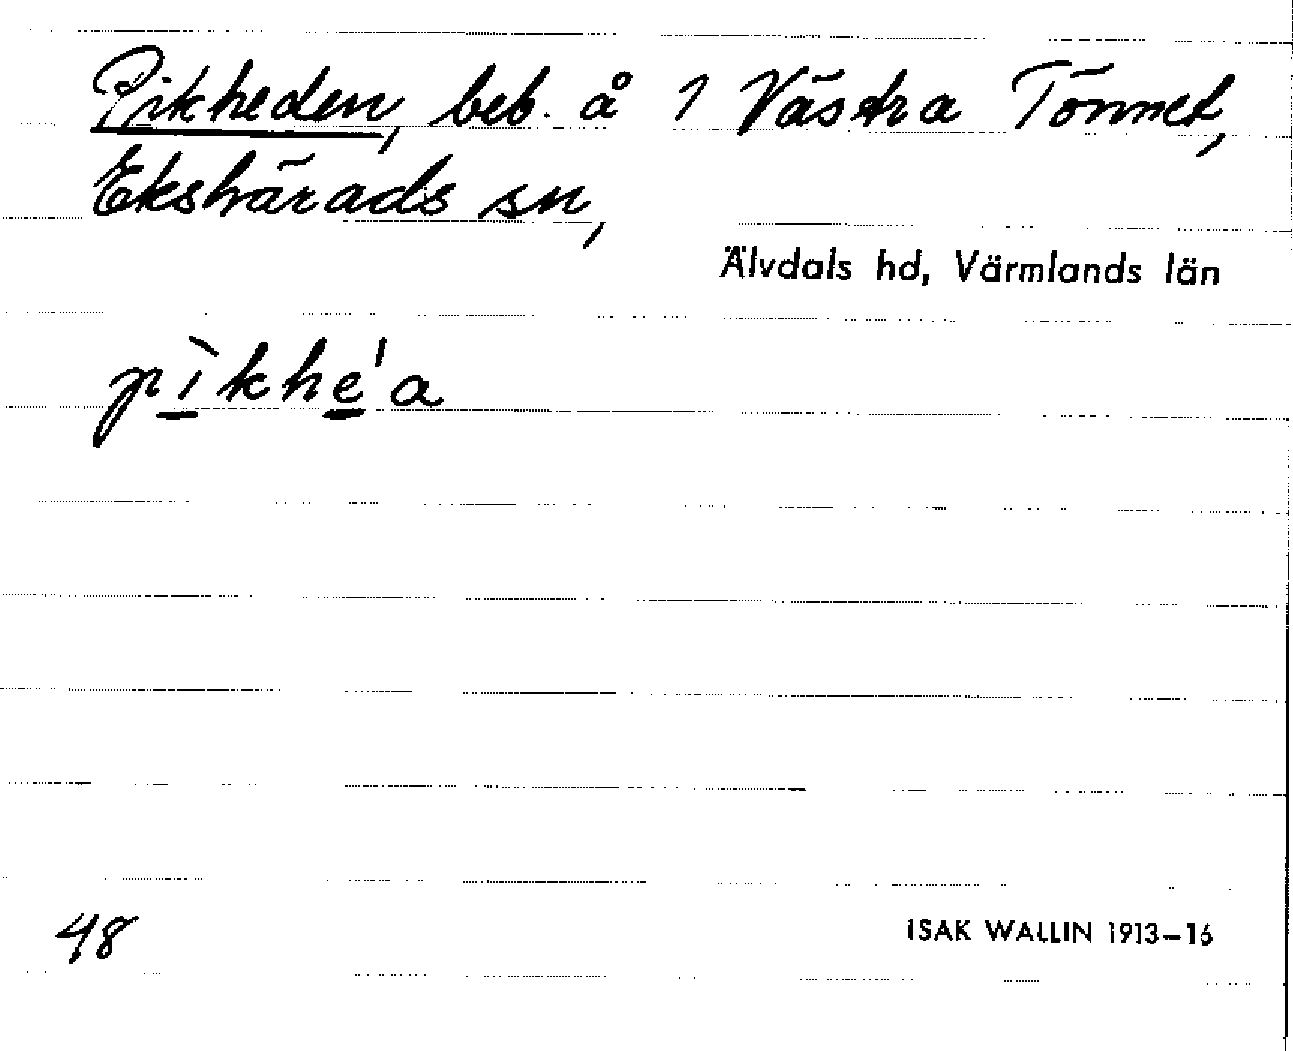 Pikheden, beb. å 1 Västra Tönnet,
Ekshärads sn,
Älvdals hd, Värmlands län
pìkhe'a
48
ISAK WALLIN 1913–16